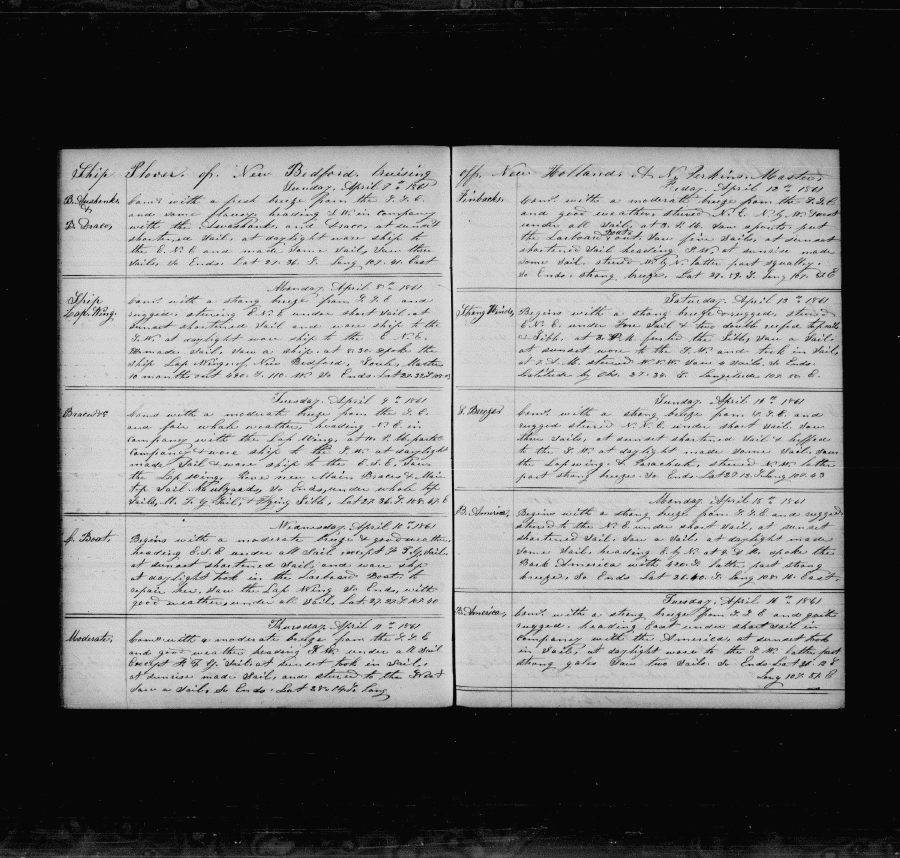 Ship Plover, of New Bedford, Cruising
Sunday, April 7th 1861
B. Awashonks
&
B. Draco,
Coms with a fresh breeze from the S.S.E.
and some flawey, heading S.W. in company
with the Awashonks, and Draco, at sunset
shortened Sail, at daylight wore ship to
the E.N.E. and made some Sail, Saw three
Sails, So Ends. Lat 27.36. S. Long 107.41. East
Monday, April 8th 1861
Ship
Lap. Wing.
Coms with a strong breeze from S.S.E. and
rugged, steering E.N.E under short Sail at
sunset shortened Sail and wore ship to the
S.W. at daylight wore ship to the E.N.E.
& made Sail, Saw a ship, at 8.30 spoke the
Ship Lap Wing, of New Bedford, Master
10 months out So Ends. Lat
Tuesday, April 9th 1861
Braces &c
Coms with a moderate breeze from the S.E.
and fair whale weather, heading N.E. in
company with the Lap Wing. at P.M. parted
company & wore ship to the S.W. at daylight
made Sail & wore ship to the E.S.E. Saw
the Lap Wing. Rove new Main Braces & Main
Top Sail Haulyards, So Ends, under whole top
Sails, M. T. G Sail, & Flying Jibb, Lat 27.26. S. 108.47 E
Wednesday, April 10th 1861
L. Boat,
Begins with a moderate breeze & good weather,
heading E.S.E under all Sail except F T G Sails
at sunset shortened Sail, and wore ship
at daylight took in the Larboard Boat, to
repair her. Saw the Lap Wing So Ends, with
good weather, under all Sails, Lat 27.27. S 107.40
Thursday, April 11th 1861
Moderate,
Coms with a moderate breeze from the S.S.E
and good weather heading S.W. under all Sail
except F. T. G. Sails at sunset took in Sails,
at sunrise made Sails, and steered to the
Saw a Sail, So Ends. Lat 28.14. S Long
off, New Holland, A. N. Perkins, Master,
Friday, April 12th 1861
Finbacks,
Coms with a moderate breeze from the S.S.E
and good weather, steered N.E. N. by W.
under all Sails, at 3. P.M. Saw spouts put
the Larboard Boat out. Saw five Sails, at sunset
shortened Sail heading S.W. at sunset made
some Sail, steered latter part squalley.
So Ends, strong breeze, Lat 27.59. S. Long 107. E
Saturday, April 13th 1861
Strong Winds,
Begins with a strong breeze & rugged, steered
E.N.E. under Fore Sail & two double reefed topsails
& Jibb, at 3. P.M. furled the Jibb, Saw a Sail.
at sunset wore to the S.W. and took in Sail,
at 7. A.M. steered N.N.W. Saw 2 Sails, So Ends.
Latitude by Ob. 27.34. S. Longitude 107.50. E.
Sunday, April 14th 1861
S. Breeze
Coms with a strong breeze from S.S.E. and
rugged steered N.N.E. under short Sail. Saw
three Sails, at sunset shortened Sail & luffed
to the S.W. at daylight made some Sail. Saw
the Lapwing. & Parachute, steered N.W. latter
part strong breeze. So Ends. Lat 27.12. S Long 107.43
Monday, April 15th 1861
B. America,
Begins with a strong breeze from S.S.E and rugged
steered to the N.E under short Sail, at sunset
shortened Sail. Saw a Sail at daylight made
some Sail heading E. by N. at 7. A.M. spoke the
Bark America with latter part strong
breeze, So Ends Lat 26.40. S. Long 108.16. East.
Tuesday, April 16th 1861
B. America,
Coms with a strong breeze from S.S.E and quite
rugged. heading East under short Sail in
company with the America, at sunset took
in Sails, at daylight wore to the S.W. latter part
strong gales Saw two Sails. So Ends Lat 26.12 S
Long 107.52. E